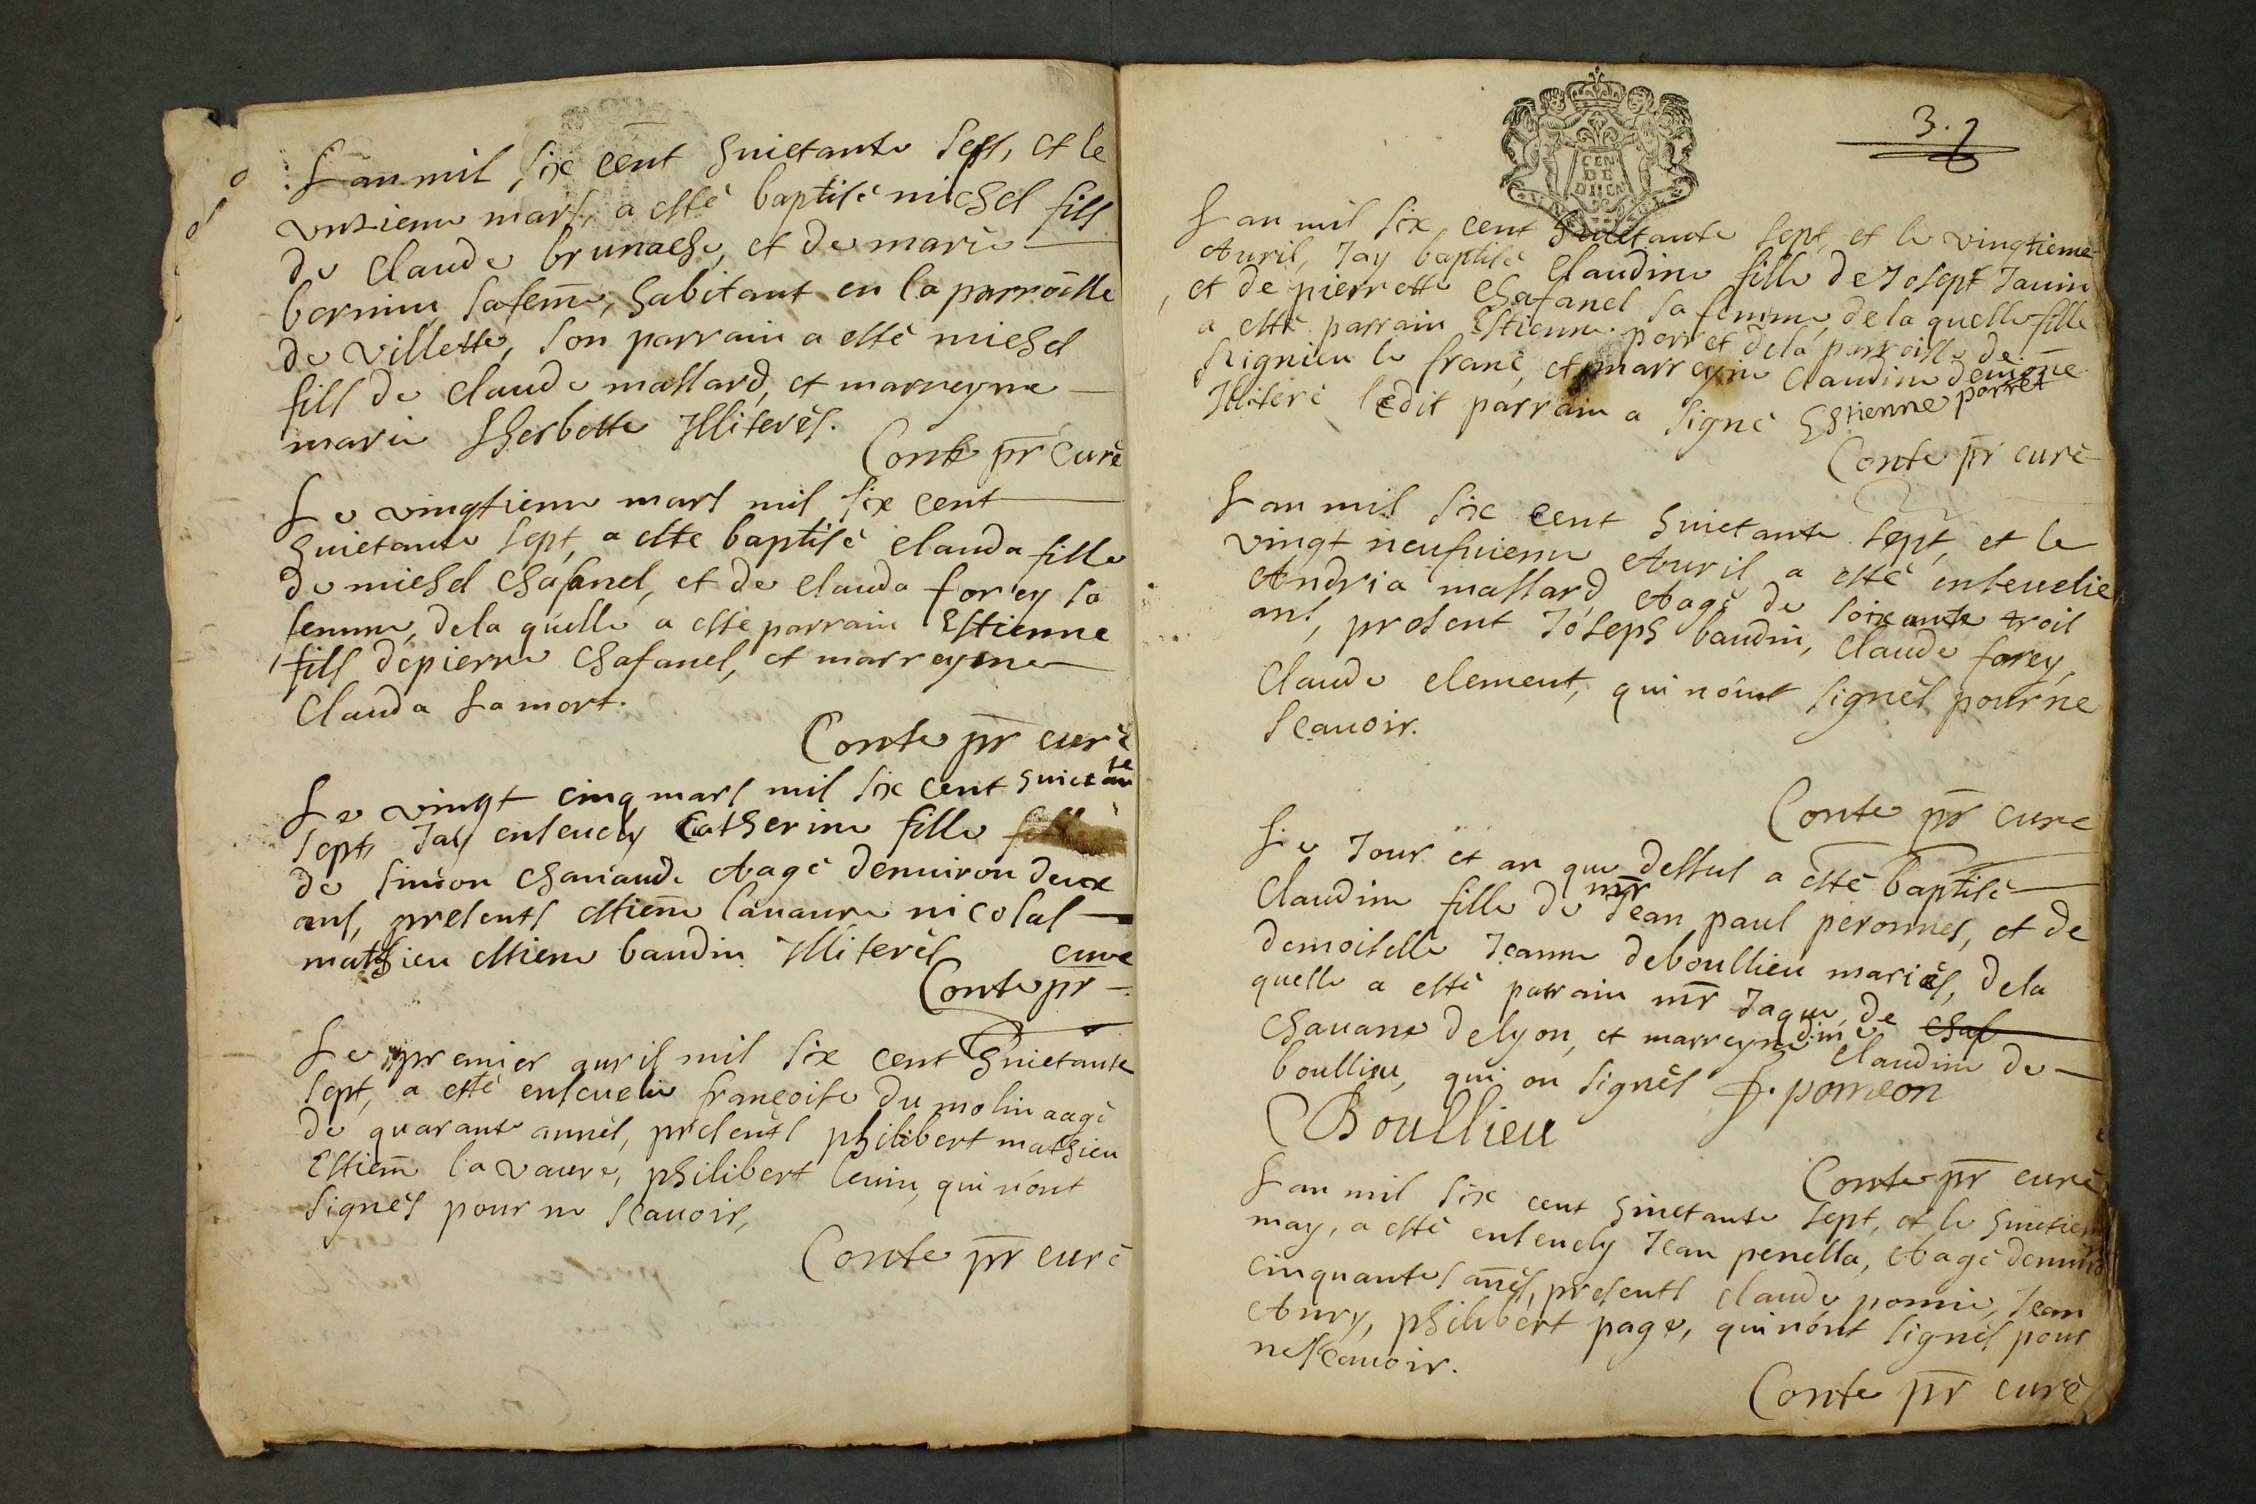 L'an mil six cent huictante sept, et le
unzieme mars, a esté baptisé michel fils
de claude brunache, et de marie
bernin, sa feme, habitant en la parroisse
de villette, son parrain a esté michel
fils de claude massard, et marreyne
marie Sherbette Illiterés.
Conte pr curé
Le vingtieme mars mil six cent
huictante sept, a esté baptisé clauda fille
de michel chafanel, et de clauda forey sa
femme, dela quelle a esté parrain Estienne
fils de pierre chafanel, et marreyne
Clauda Lamort.
Conte pr curé
Le vingt cinq mars mil six cent huictante
sept, Jay enseuely Catherine fille
de simeon chanaud Aagé denuiron deux
ans, presents estiene lauaure nicolas
mathieu estiene baudin Illiterés
curé
Conte pr
Le premier auril mil six cent huictante
sept, a esté enseuelie françoise du molin aagé
de quarante annés, presents philibert mathieu
Estiene la vaure, philibert leuin, qui n'ont
signés pour ne scauoir,
Conte pr curé
3.
CEN
DE
DIION
L'an mil six cent huictante sept, et le vingtieme
Auril, Jay baptisé Claudine fille de Josept Janin
et de pierrette chafanel sa femme, de la quelle fille
a esté parrain Estienne porret dela parroisse de
Rignieu le franc, et marreyne Claudine
Illiteré ledit parrain a signé Estienne porret
Conte pr curé
L'an mil six cent huictante sept, et le
vingt neufuieme Auril a esté enseuelie
Andria massard Aagé de soixante trois
ans, present Joseph baudin, Claude forey,
Claude clement, qui n'ont signés pour ne
scauoir.
Conte pr curé
Le Jour et an que dessus a esté baptisé
Claudine fille de mr Jean paul peronnes, et de
demoiselle Jeanne deboullieu mariés, dela
quelle a esté parrain mr Jaque de chaf
chauane de lyon, et marreyne dme claudine de
boullieu, qui on signés J. pomeon
Boullieu
Conte pr curé
L'an mil six cent huictante sept, et le huictieme
may, a esté enseuely Jean penella, Aagé denuiro
cinquantes anés, presents claude pomie, Jean
Aury, philibert page, qui n'ont signés pour
ne scauoir.
Conte pr curé